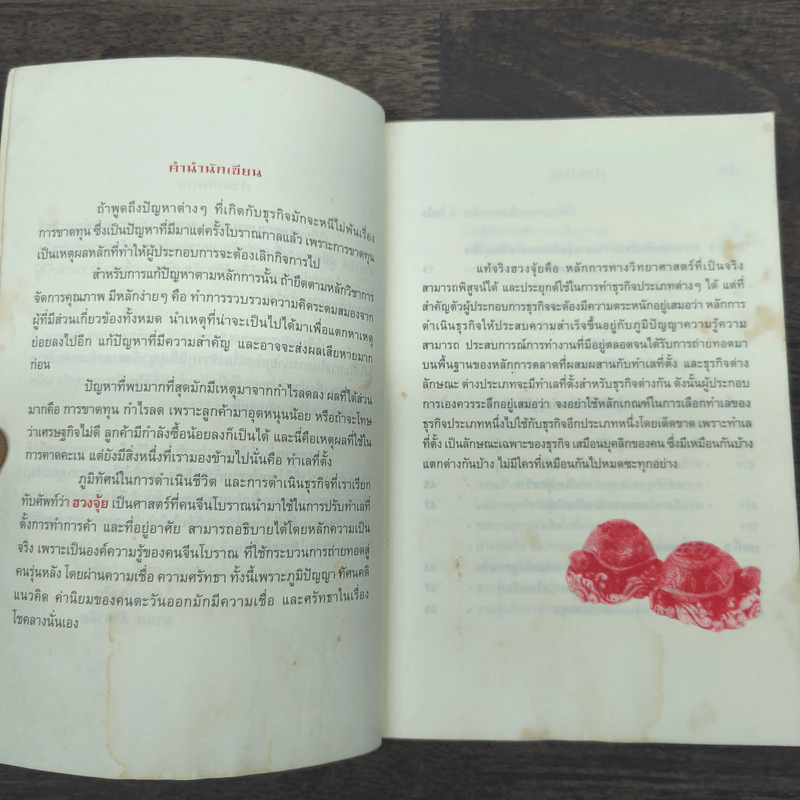 คำนำนักเขียน
ถ้าพูดถึงปัญหาต่างๆ ที่เกิดกับธุรกิจมักจะหนีไม่พ้นเรื่อง
การขาดทุน ซึ่งเป็นปัญหาที่มีมาแต่ครั้งโบราณกาลแล้ว เพราะการขาดทุน
เป็นเหตุผลหลักที่ทำให้ผู้ประกอบการจะต้องเลิกกิจการไป
สำหรับการแก้ปัญหาตามหลักการนั้น ถ้ายึดตามหลักวิชาการ
จัดการคุณภาพ มีหลักง่ายๆ คือ ทำการรวบรวมความคิดระดมสมองจาก
ผู้ที่มีส่วนเกี่ยวข้องทั้งหมด นำเหตุที่น่าจะเป็นไปได้มาเพื่อแตกหาเหตุ
ย่อยลงไปอีก แก้ปัญหาที่มีความสำคัญ และอาจจะส่งผลเสียหายมาก
ก่อน
ปัญหาที่พบมากที่สุดมักมีเหตุมาจากกำไรลดลง ผลที่ได้ส่วน
มากคือ การขาดทุน กำไรลด เพราะลูกค้ามาอุดหนุนน้อย หรือถ้าจะโทษ
ว่าเศรษฐกิจไม่ดี ลูกค้ามีกำลังซื้อน้อยลงก็เป็นได้ และนี่คือเหตุผลที่ใช้ใน
การคาดคะเน แต่ยังมีสิ่งหนึ่งที่เรามองข้ามไปนั่นคือ ทำเลที่ตั้ง
ภูมิทัศน์ในการดำเนินชีวิต และการดำเนินธุรกิจที่เราเรียก
ทับศัพท์ว่า ฮวงจุ้ย เป็นศาสตร์ที่คนจีนโบราณนำมาใช้ในการปรับทำเลที่
ตั้งการทำการค้า และที่อยู่อาศัย สามารถอธิบายได้โดยหลักความเป็น
จริง เพราะเป็นองค์ความรู้ของคนจีนโบราณ ที่ใช้กระบวนการถ่ายทอดสู่
คนรุ่นหลัง โดยผ่านความเชื่อ ความศรัทธา ทั้งนี้เพราะภูมิปัญญา ทัศนคติ
แนวคิด ค่านิยมของคนตะวันออกมักมีความเชื่อ และศรัทธาในเรื่อง
โชคลางนั่นเอง
แท้จริงฮวงจุ้ยคือ หลักการทางวิทยาศาสตร์ที่เป็นจริง
สามารถพิสูจน์ได้ และประยุกต์ใช้ในการทำธุรกิจประเภทต่างๆ ได้ แต่ที่
สำคัญตัวผู้ประกอบการธุรกิจจะต้องมีความตระหนักอยู่เสมอว่า หลักการ
ดำเนินธุรกิจให้ประสบความสำเร็จขึ้นอยู่กับภูมิปัญญาความรู้ความ
สามารถ ประสบการณ์การทำงานที่มีอยู่ตลอดจนได้รับการถ่ายทอดมา
บนพื้นฐานของหลักการตลาดที่ผสมผสานกับทำเลที่ตั้ง และธุรกิจต่าง
ลักษณะ ต่างประเภทจะมีทำเลที่ตั้งสำหรับธุรกิจต่างกัน ดังนั้นผู้ประกอบ
การเองควรระลึกอยู่เสมอว่า จงอย่าใช้หลักเกณฑ์ในการเลือกทำเลของ
ธุรกิจประเภทหนึ่งไปใช้กับธุรกิจอีกประเภทหนึ่งโดยเด็ดขาด เพราะทำเล
ที่ตั้ง เป็นลักษณะเฉพาะของธุรกิจ เสมือนบุคลิกของคน ซึ่งมีเหมือนกันบ้าง
แตกต่างกันบ้าง ไม่มีใครที่เหมือนกันไปหมดซะทุกอย่าง